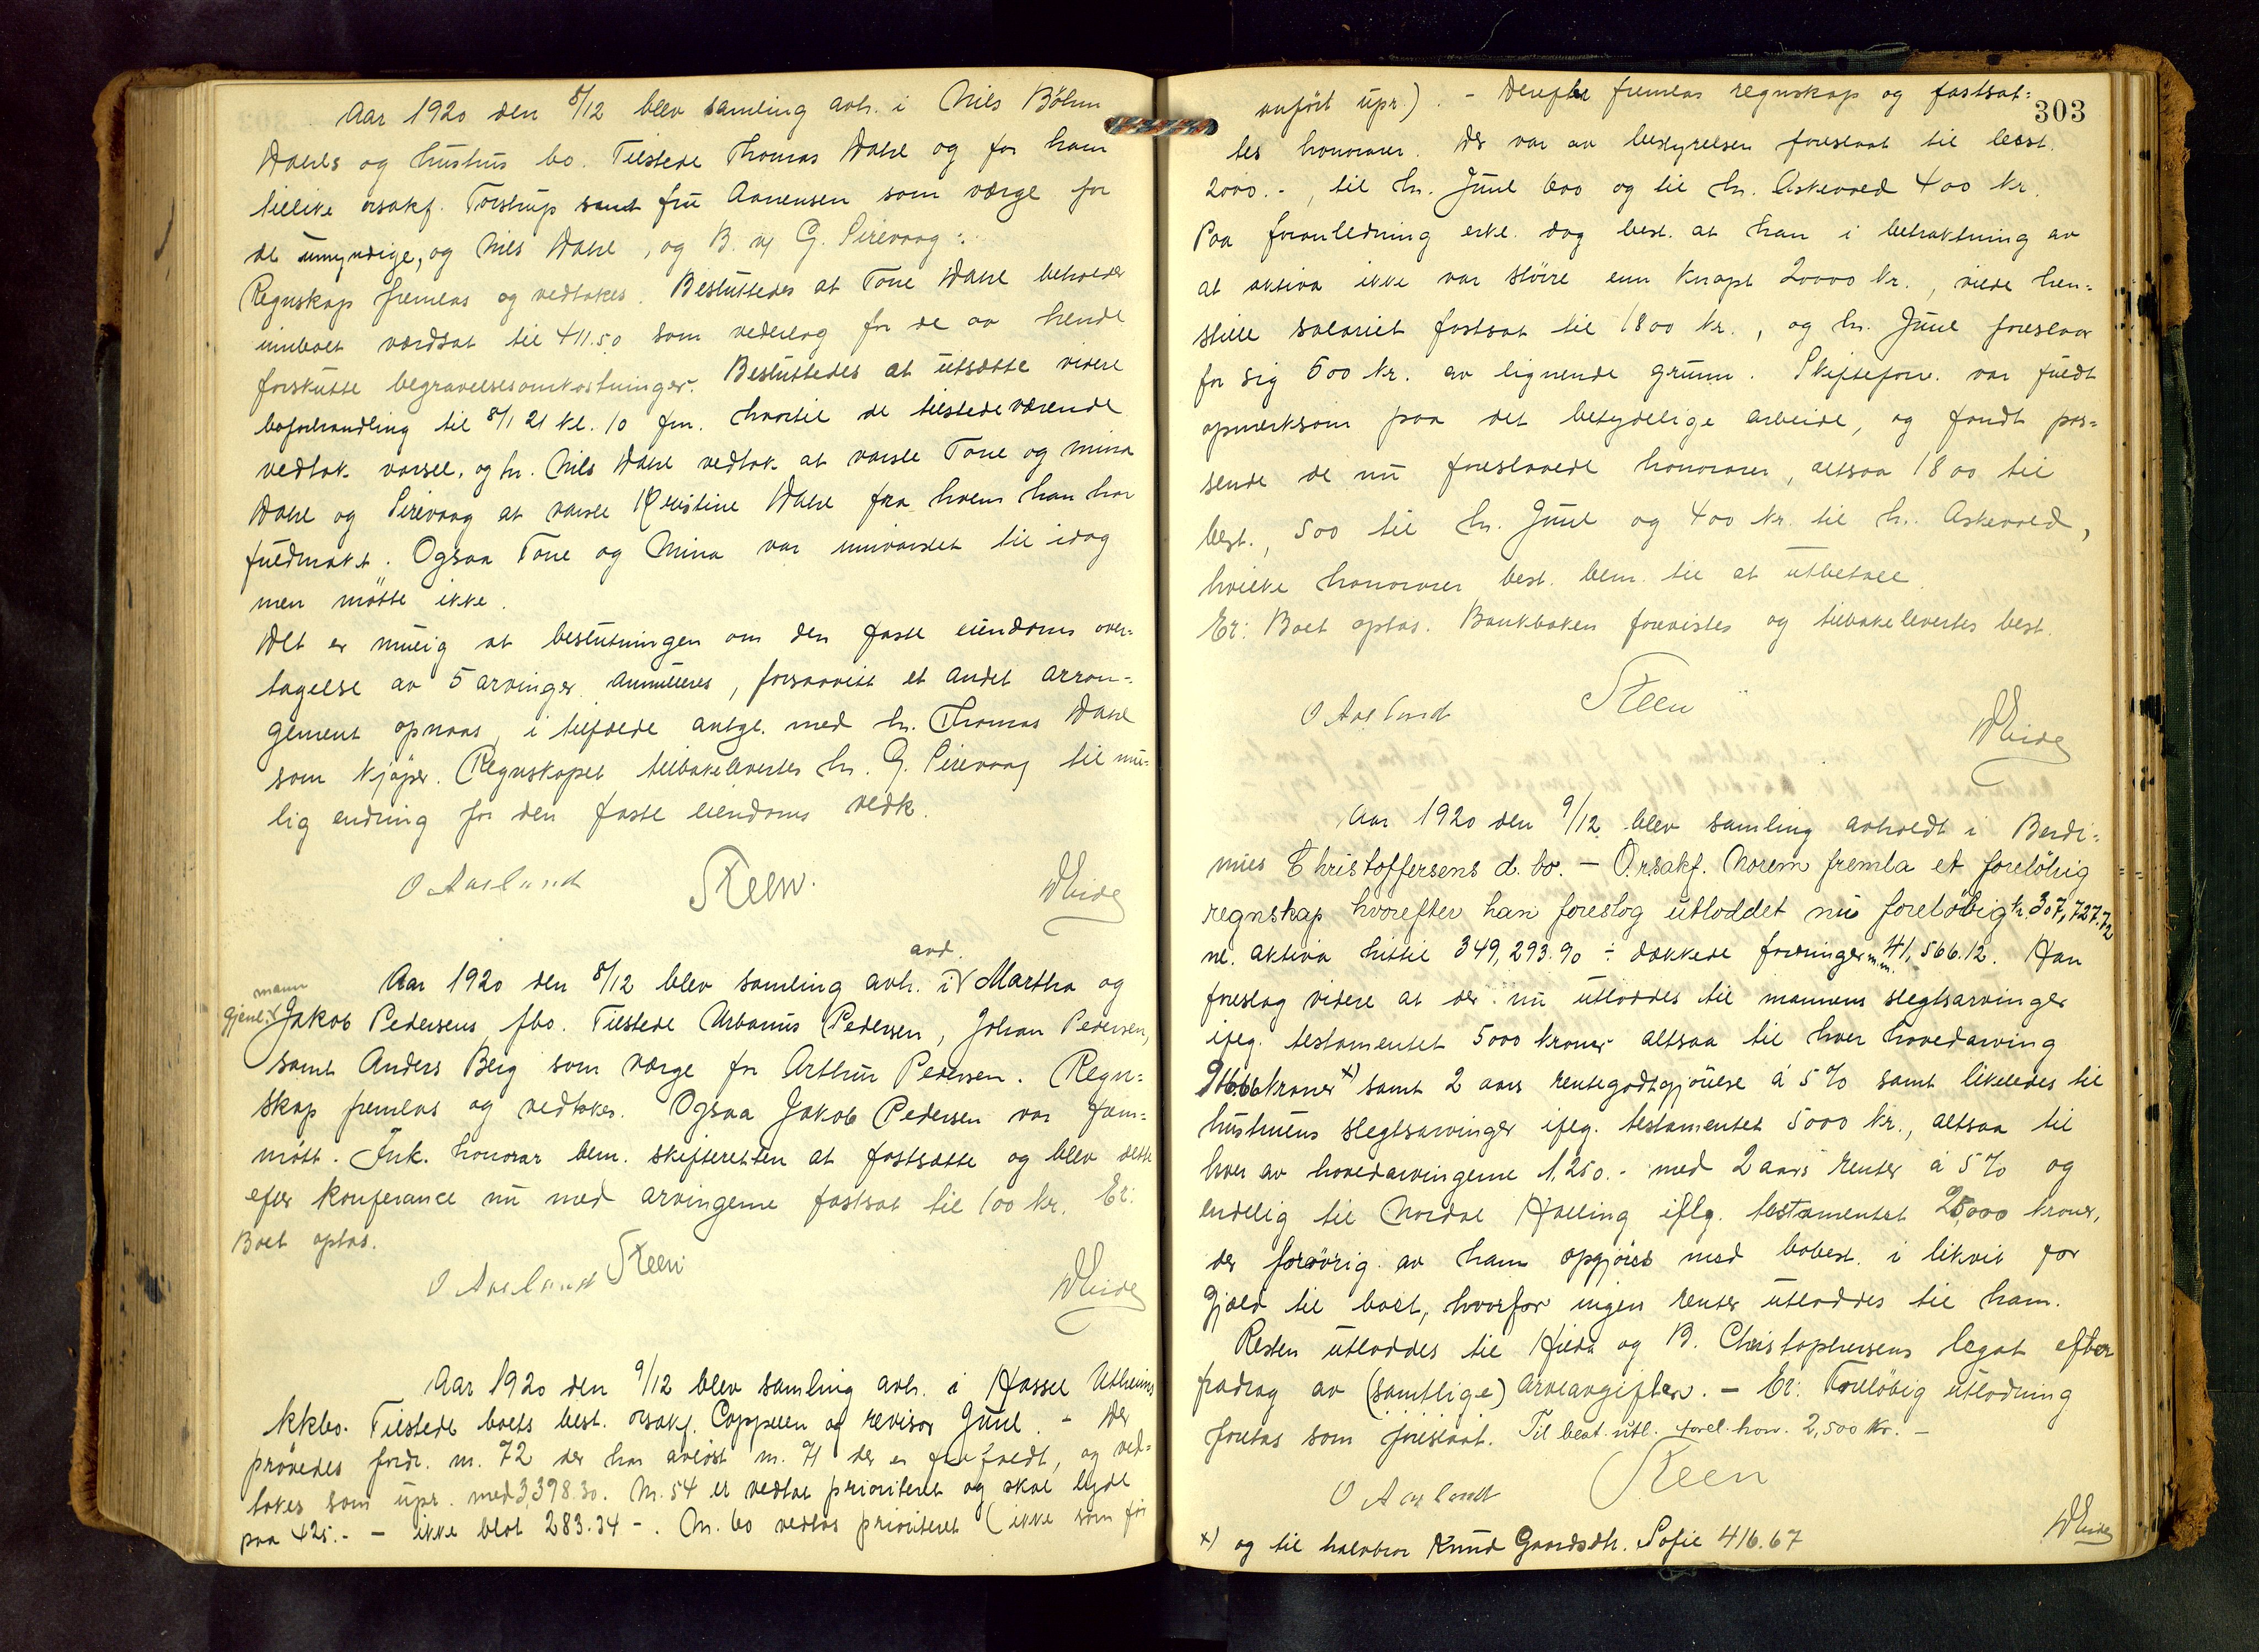 Aar 1920 den 8/12 blev samling avh. i Nils Böhm
Dahls og hustrus bo. Tilstede Thomas Dahl og for ham
tillike orsakf. Torstrup samt fru Aanensen som værge for
de umyndige, og Nils Dahl, og B. v/ G. Sirevaag :.
Regnskap fremlas og vedtokes. Besluttedes at Tone Dahl beholder
innboet værdsat til 411.50 som vederlag for de av hende
forskutte begravelsesomkostninger. Besluttedes at utsætte videre
bobehandling til 8/1 21 kl. 10 fm. hvortil de tilstedeværende
vedtok varsel, og hr. Nils Dahl vedtok at varsle Tone og Mina
Dahl og Sirevaag at varsle Kristine Dahl fra hvem han har
fuldmakt. Ogsaa Tone og Mina var innvarslet til idag
men mötte ikke.
Det er mulig at beslutningen om den faste eiendoms over-
tagelse av 5 arvinger annulleres, forsaavitt et andet arran-
gement opnaas, i tilfælde antge. med hr. Thomas Dahl
som kjöper. Regnskapet tilbakelevertes hr. G. Sirevaag til mu-
lig endring for den faste eiendoms vedk.
O Aasland Steen.
Aar 1920 den 8/12 blev samling avh. i avd. Martha og
gjenl. mann Jakob Pedersens fbo. Tilstede Urbanus Pedersen, Johan Pedersen,
samt Anders Berg som værge for Arthur Pedersen. Regn-
skap fremlas og vedtokes. Ogsaa Jakob Pedersen var frem-
mött. Ink. honorar bem. skifteretten at fastsætte og blev dette
efter konferance nu med arvingerne fastsat til 100 kr. Er:
Boet optas.
O Aasland Steen
Aar 1920 den 9/12 blev samling avh. i Hassel Utheims
kkbo. Tilstede boets best. orsakf. Coppelen og revisor Juul. - Der
prövedes fordr. nr. 72 der har avlöst nr. 71 der er frafaldt, og ved-
tokes som upr. med 3,398.30. Nr. 54 er vedtat prioriteret og skal lyde
paa 425.- - ikke blot 283.34 -. Nr. 60 vedtas prioriteret (ikke som för
303
anfört upr.). - Derefter fremlas regnskap og fastsat-
tes honorarer. Der var av bestyrelsen foreslaat til best.
2000.-, til hr. Juul 600 og til hr. Askevold 400 kr.
Paa foranledning erkl. dog best. at han i betraktning av
at aktiva ikke var större enn knapt 20000 kr., vilde hen-
stille salariet fastsat til 1800 kr., og hr. Juul foreslaar
for sig 500 kr. av lignende grunn. Skifteforv. var fuldt
opmerksom paa det betydelige arbeide, og fandt pas-
sende de nu foreslaaede honorarer, altsaa 1800 til
best., 500 til hr. Juul og 400 kr. til hr. Askevold,
hvilke honorarer best. bem. til at utbetale.
Er: Boet optas. Bankboken forevistes og tilbakelevertes best.
O Aasland Steen
Aar 1920 den 9/12 blev samling avholdt i Berdi-
nius Christoffersens d. bo. - O.rsakf. Norem fremla et forelöbig
regnskap hvorefter han foreslog utloddet nu forelöbig kr. 307,727.72
nl. aktiva hittil 349,293.90 ÷ dækkede fordringer m.m. 41,566.12. Han
foreslog videre at der nu utloddes til mannens slegtsarvinger
ifög. testamentet 5000 kroner altsaa til hver hovedarving
916.66 kroner x) samt 2 aars rentegodtgjörelse á 5 % samt likeledes til
hustruens slegtsarvinger ifög. testamentet 5000 kr., altsaa til
hver av hovedarvingerne 1,250.- med 2 aars renter á 5 % og
endelig til Nordal Halling iflg. testamentet 25,000 kroner,
der forövrig av ham opgjöres med bobest. i likvit for
gjæld til boet, hvorfor ingen renter utloddes til ham.
Resten utloddes til Hilda og B. Christophersens legat efter
fradrag av (samtlige) arveavgifter. - Er: Forelöbig utlodning
foretas som foreslaat. Til best. utl. forel. hon. 2,500 kr. -
O Aasland Steen
x) og til halvbror Knud Gaardsdtr. Sofie 416.67